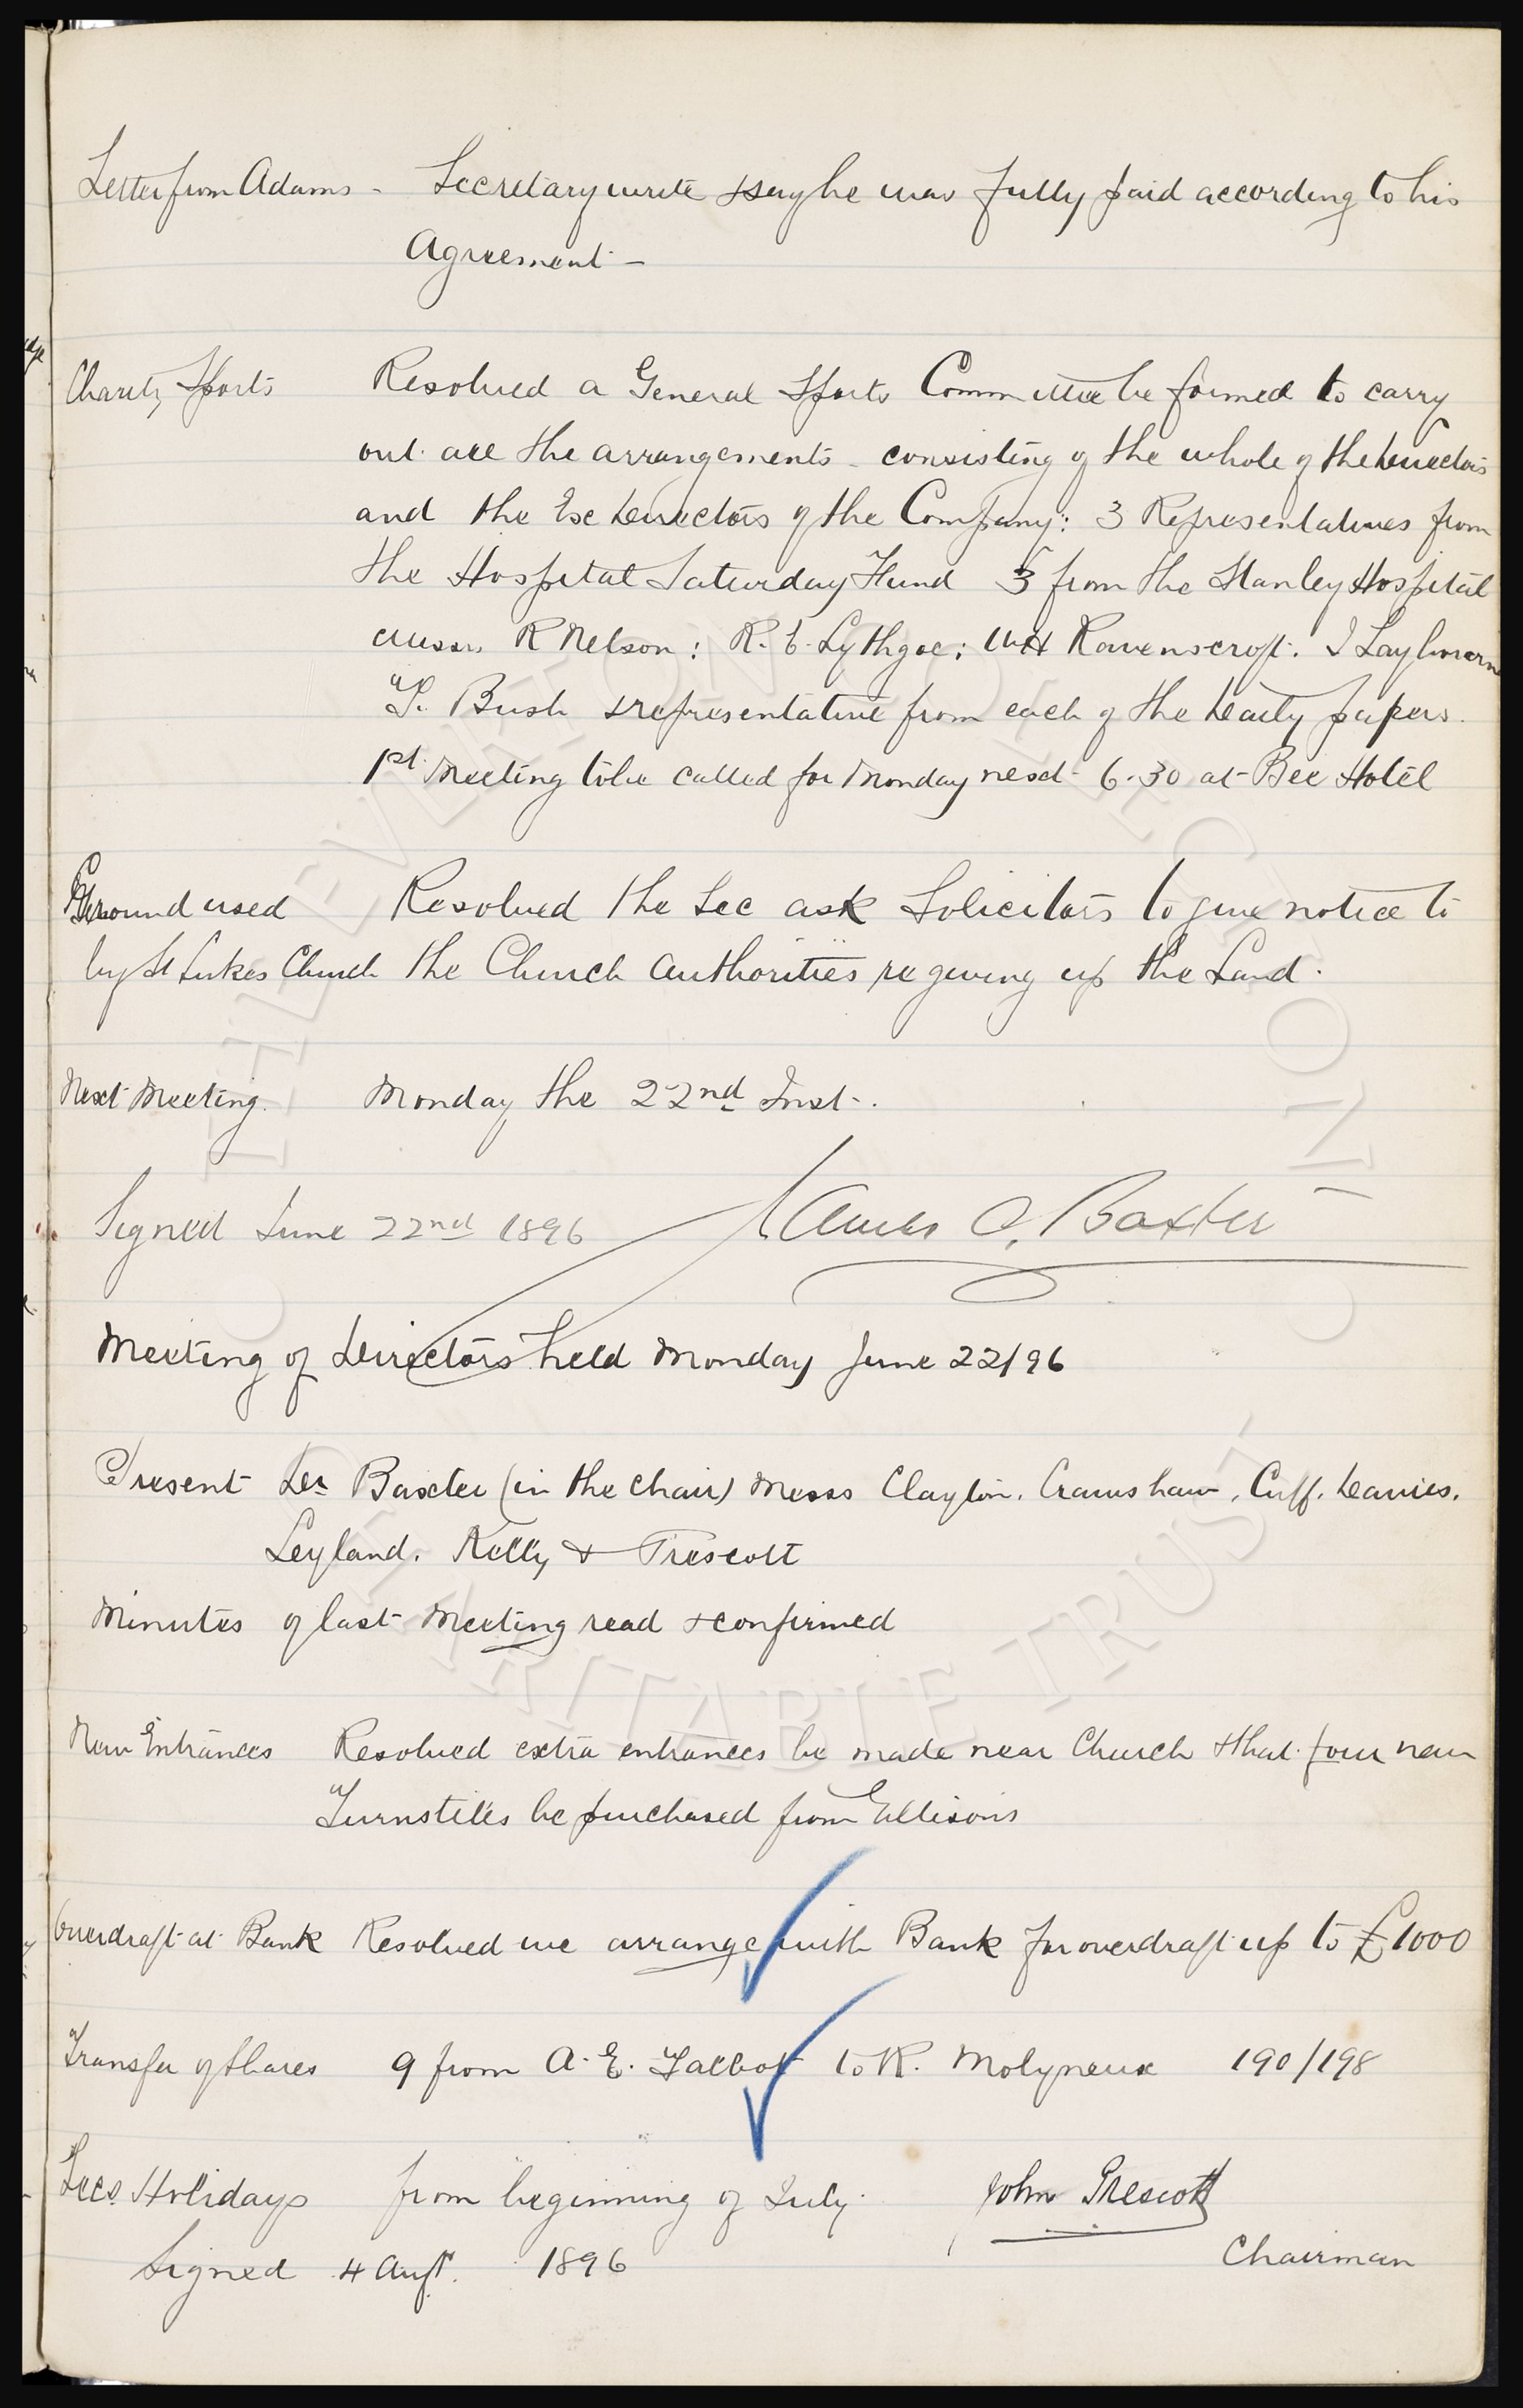 Letter from Adams - Secretary write & say he was fully paid according to his
Agreement -
Charity Sports Resolved a General Sports Committee be formed to carry
out all the arrangements - consisting of the whole of the Directors
and the Ex Directors of the Company: 3 Representatives from
the Hospital Saturday Fund 3 from the Stanley Hospital
Messrs R Nelson: R. E. Lythgoe: WH Ravenscroft. J Laybourne
T. Bush & representative from each of the Daily papers.
1st Meeting to be called for Monday next 6.30 at Bee Hotel
Ground used Resolved the Sec ask Solicitors to give notice to
by St Lukes Church the Church Authorities re giving up the Land.
Next Meeting. Monday the 22nd Inst.
Signed June 22nd 1896 James C. Baxter
Meeting of Directors held Monday June 22/96
Present Dr Baxter (in the Chair) Messs Clayton. Crawshaw, Cuff. Davies.
Leyland. Kelly & Prescott
Minutes of last Meeting read & confirmed
New Entrances Resolved extra entrances be made near Church & that four new
Turnstiles be purchased from Ellisons
Overdraft at Bank Resolved we arrange with Bank for overdraft up to £1000
Transfer of Shares 9 from A. E. Talbot to R. Molyneux 190/198
Secs. Holidays from beginning of July. John Prescott
Signed 4 Augt. 1896 Chairman